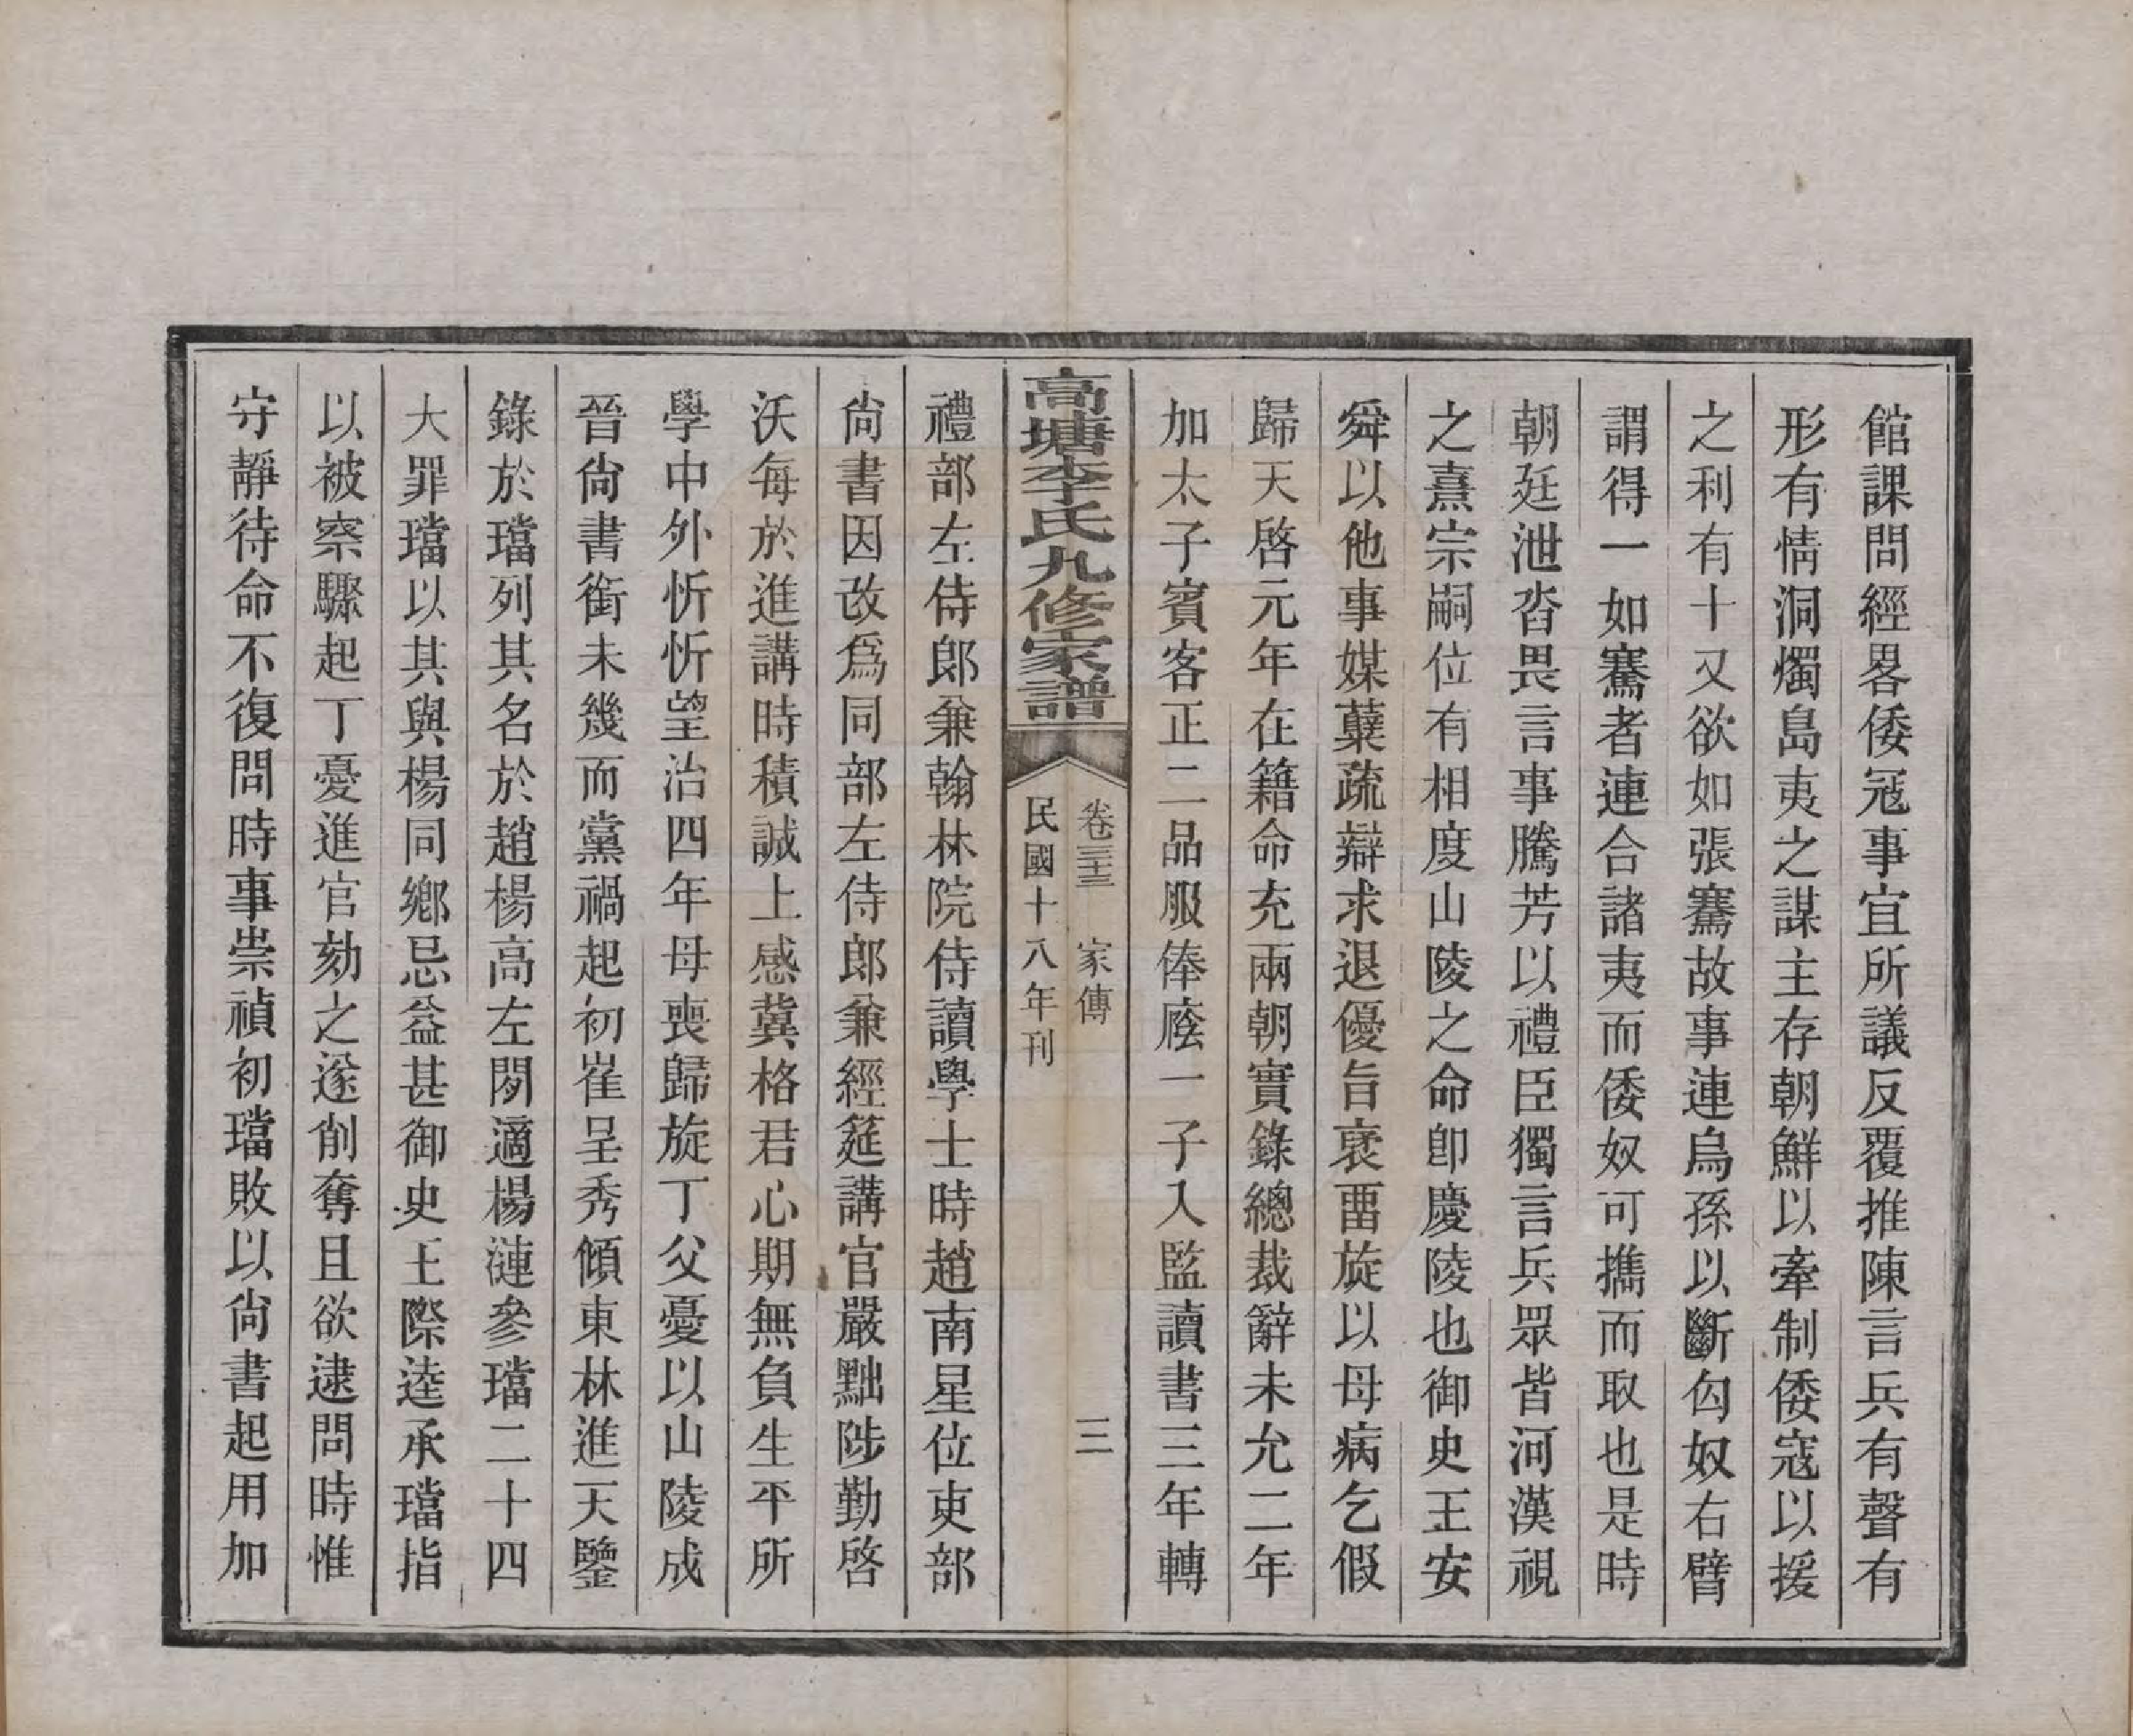 館課問經畧倭冦事宜所議反覆推陳言兵有聲有
形有情洞燭島夷之謀主存朝鮮以牽制倭寇以援
之利有十又欲如張騫故事連烏孫以斷匈奴右臂
謂得一如騫者連合諸夷而倭奴可擕而取也是時
朝廷泄沓畏言事騰芳以禮臣獨言兵眾皆河漢視
之熹宗嗣位有相度山陵之命卽慶陵也御史王安
舜以他事媒蘖疏辯求退優旨褒畱旋以母病乞假
歸天啓元年在籍命充兩朝實錄總裁辭未允二年
加太子賓客正二品服俸廕一子入監讀書三年轉
高塘李氏九修家譜
卷三十三 家傳
三
民國十八年刊
禮部左侍郎兼翰林院侍讀學士時趙南星位吏部
尙書因改爲同部左侍郎兼經筵講官嚴黜陟勤啓
沃每於進講時積誠上感冀格君心期無負生平所
學中外忻忻望治四年母喪歸旋丁父憂以山陵成
晉尙書銜未幾而黨禍起初崔呈秀傾東林進天鑒
錄於璫列其名於趙楊高左閒適楊漣參璫二十四
大罪璫以其與楊同鄉忌益甚御史王際逵承璫指
以被察驟起丁憂進官劾之遂削奪且欲逮問時惟
守靜待命不復問時事崇禎初璫敗以尙書起用加